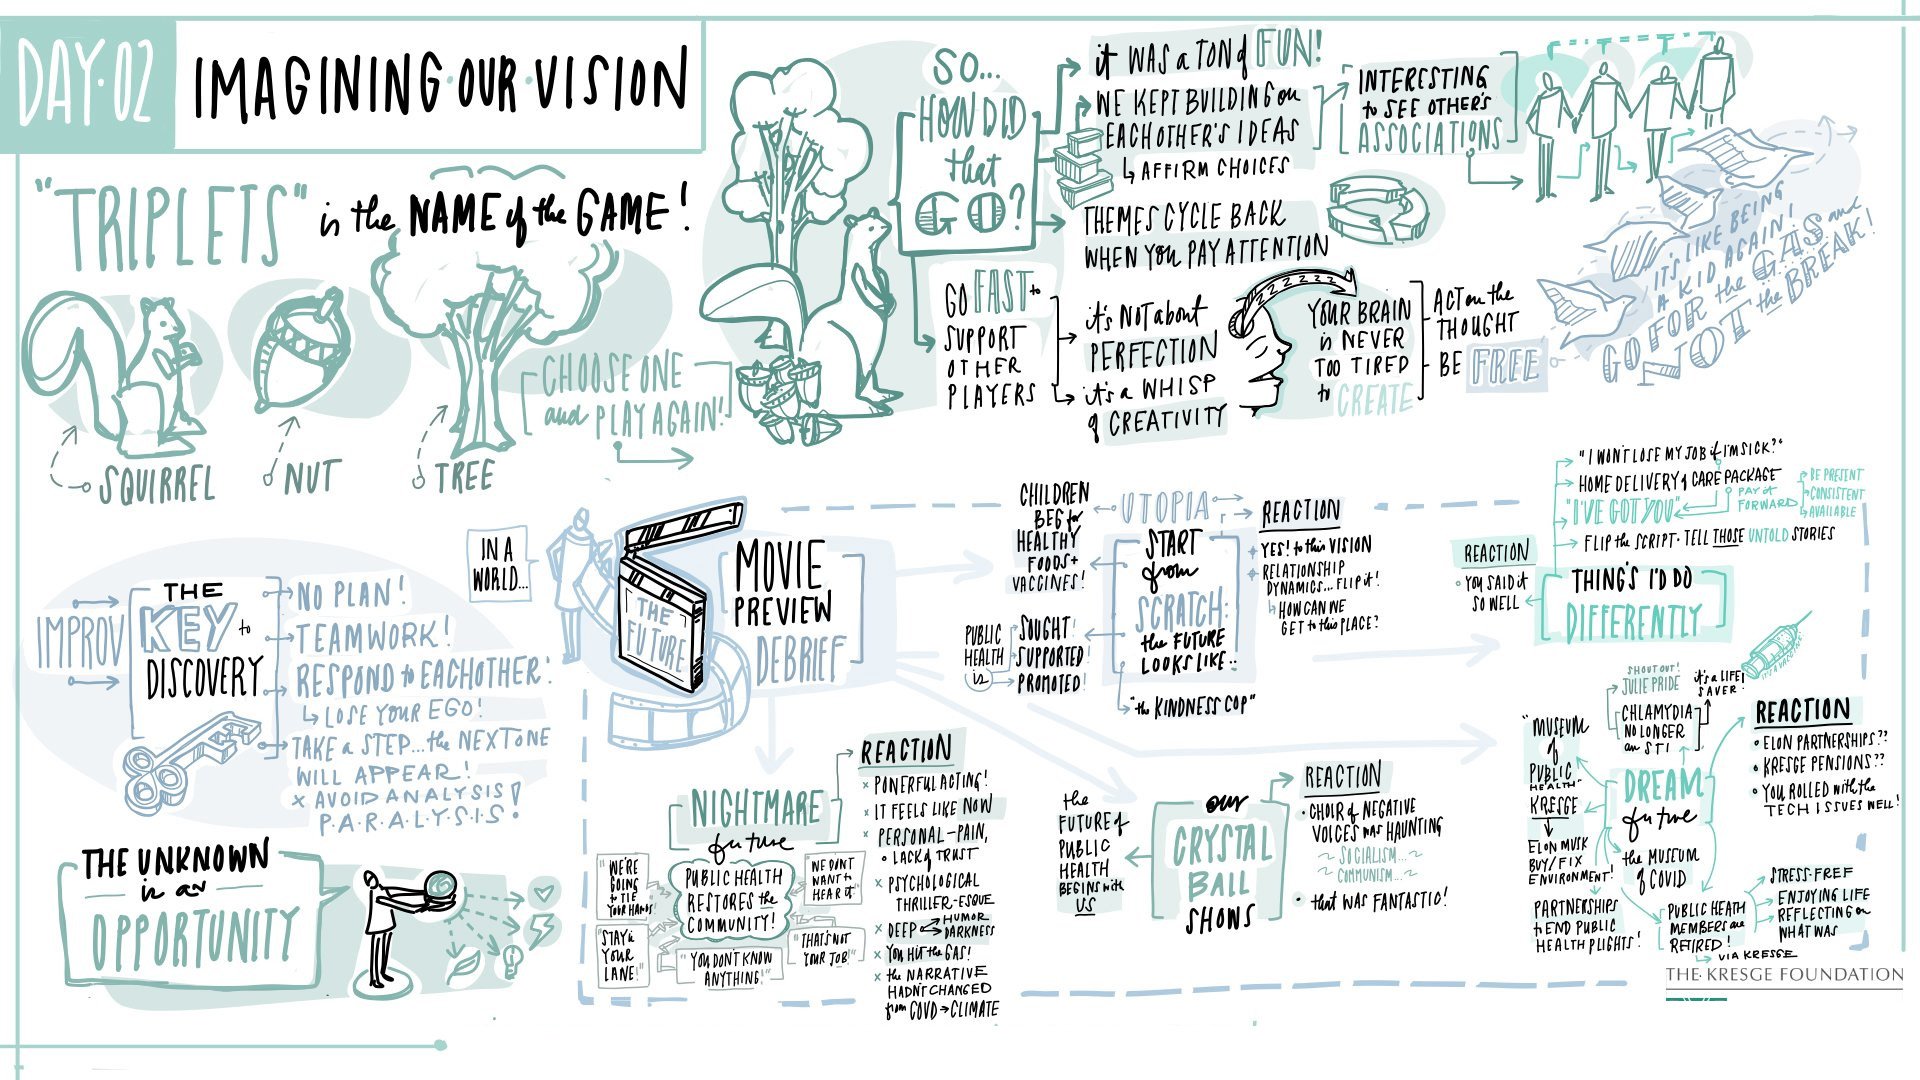 DAY·02
IMAGINING·OUR·VISION
"TRIPLETS" is the NAME of the GAME!
SQUIRREL
NUT
TREE
CHOOSE ONE
and PLAY AGAIN!
SO...
HOW DID
that
GO?
it WAS a TON of FUN!
WE KEPT BUILDING on
EACHOTHER'S IDEAS
AFFIRM CHOICES
INTERESTING
to SEE OTHER'S
ASSOCIATIONS
THEMES CYCLE BACK
WHEN YOU PAY ATTENTION
GO FAST to
SUPPORT
OTHER
PLAYERS
it's NOT about
PERFECTION
it's a WHISP
of CREATIVITY
ZZZZZ
YOUR BRAIN
is NEVER
TOO TIRED
to CREATE
ACT on the
THOUGHT
BE FREE
IT'S LIKE BEING
A KID AGAIN!
GO FOR the GAS and
NOT the BREAK!
IMPROV
THE
KEY to
DISCOVERY
NO PLAN!
TEAMWORK!
RESPOND to EACHOTHER:
LOSE YOUR EGO!
TAKE a STEP...the NEXT ONE
WILL APPEAR!
x AVOID ANALYSIS
P·A·R·A·L·Y·S·I·S!
THE UNKNOWN
is an
OPPORTUNITY
IN A
WORLD...
THE
FUTURE
MOVIE
PREVIEW
DEBRIEF
CHILDREN
BEG for
HEALTHY
FOODS +
VACCINES!
UTOPIA
START
from
SCRATCH:
the FUTURE
LOOKS LIKE..
PUBLIC
HEALTH
is
SOUGHT!
SUPPORTED!
PROMOTED!
"the KINDNESS COP"
REACTION
YES! to this VISION
RELATIONSHIP
DYNAMICS... FLIP it!
HOW CAN WE
GET to this PLACE?
NIGHTMARE
future
PUBLIC HEALTH
RESTORES the
COMMUNITY!
"WE'RE
GOING
to TIE
YOUR HANDS"
"STAY in
YOUR
LANE!"
"YOU DON'T KNOW
ANYTHING!"
"WE DON'T
WANT to
HEAR it"
"THAT'S NOT
YOUR JOB!"
REACTION
x POWERFUL ACTING!
x IT FEELS LIKE NOW
x PERSONAL-PAIN,
• LACK of TRUST
x PSYCHOLOGICAL
THRILLER-ESQUE
x DEEP
HUMOR
DARKNESS
x YOU HIT the GAS!
x the NARRATIVE
HADN'T CHANGED
from COVD → CLIMATE
the
FUTURE of
PUBLIC
HEALTH
BEGINS with
US
our
CRYSTAL
BALL
SHOWS
REACTION
• CHOIR of NEGATIVE
VOICES was HAUNTING
~ SOCIALISM... ~
~ COMMUNISM... ~
• that WAS FANTASTIC!
"I WON'T LOSE MY JOB if I'M SICK?"
HOME DELIVERY of CARE PACKAGE
"I'VE GOT YOU"
PAY it
FORWARD
BE PRESENT
CONSISTENT
AVAILABLE
FLIP the SCRIPT · TELL THOSE UNTOLD STORIES
REACTION
• YOU SAID it
SO WELL
THING'S I'D DO
DIFFERENTLY
SHOUT OUT!
JULIE PRIDE
it's a LIFE
SAVER!
CHLAMYDIA
NO LONGER
an STI
"MUSEUM
of
PUBLIC
HEALTH"
KRESGE
ELON MUSK
BUY/FIX
ENVIRONMENT!
PARTNERSHIPS
to END PUBLIC
HEALTH PLIGHTS!
DREAM
future
the MUSEUM
of COVID
PUBLIC HEATH
MEMBERS are
RETIRED!
VIA KRESGE
STRESS-FREE
ENJOYING LIFE
REFLECTING on
WHAT WAS
REACTION
• ELON PARTNERSHIPS??
• KRESGE PENSIONS??
• YOU ROLLED with the
TECH ISSUES WELL!
THE KRESGE FOUNDATION